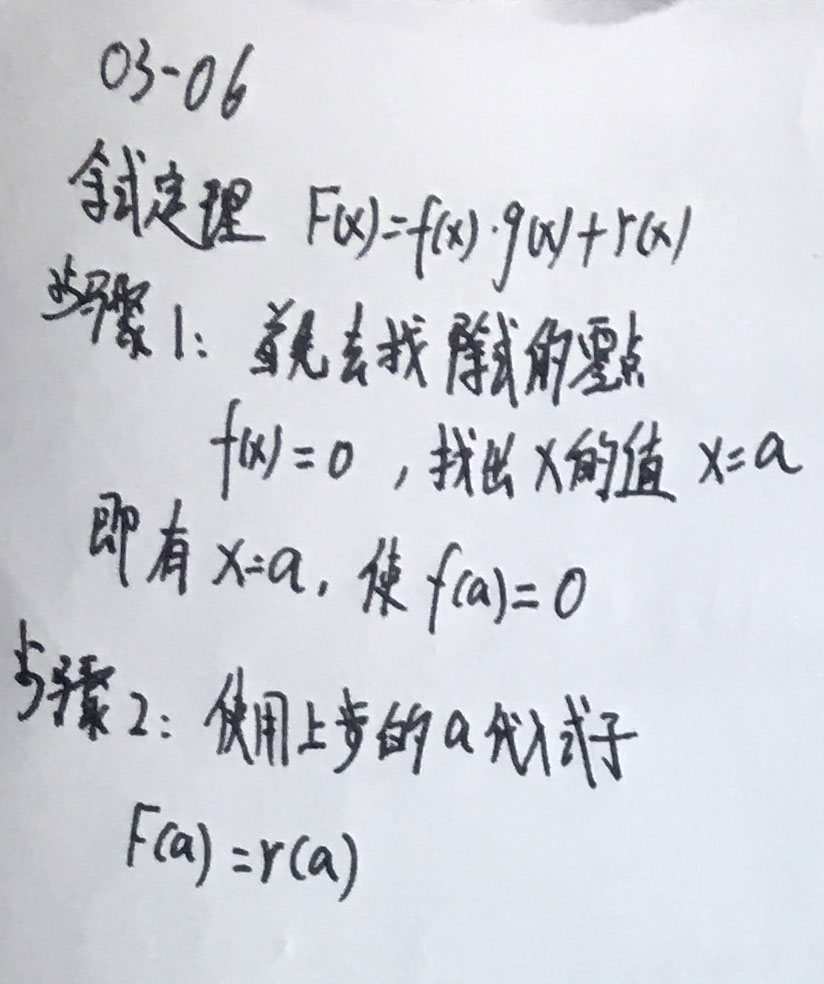 03-06
余式定理 F(x)=f(x)·g(x)+r(x)
步骤1: 首先去找除式的零点
f(x)=0 , 找出x的值 x=a
即有 x=a, 使 f(a)=0
步骤2: 使用上步的a代入式子
F(a)=r(a)